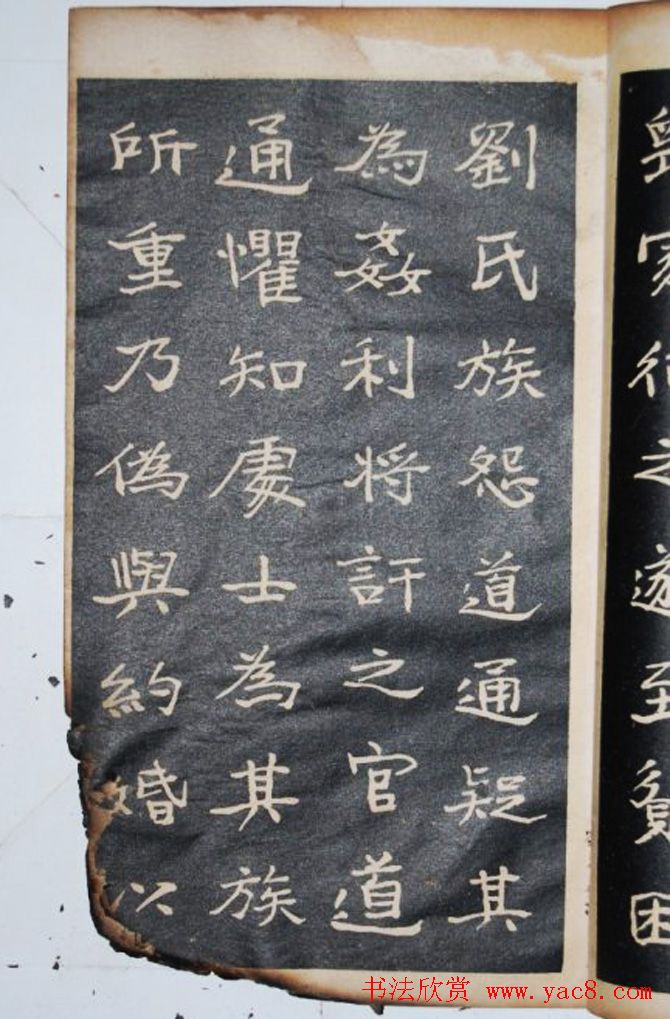 之 至 困
劉氏族怨道通疑其
為姦利將訐之官道
通懼知處士為其族
所重乃偽與約婚以
书法欣赏 www.yac8.com